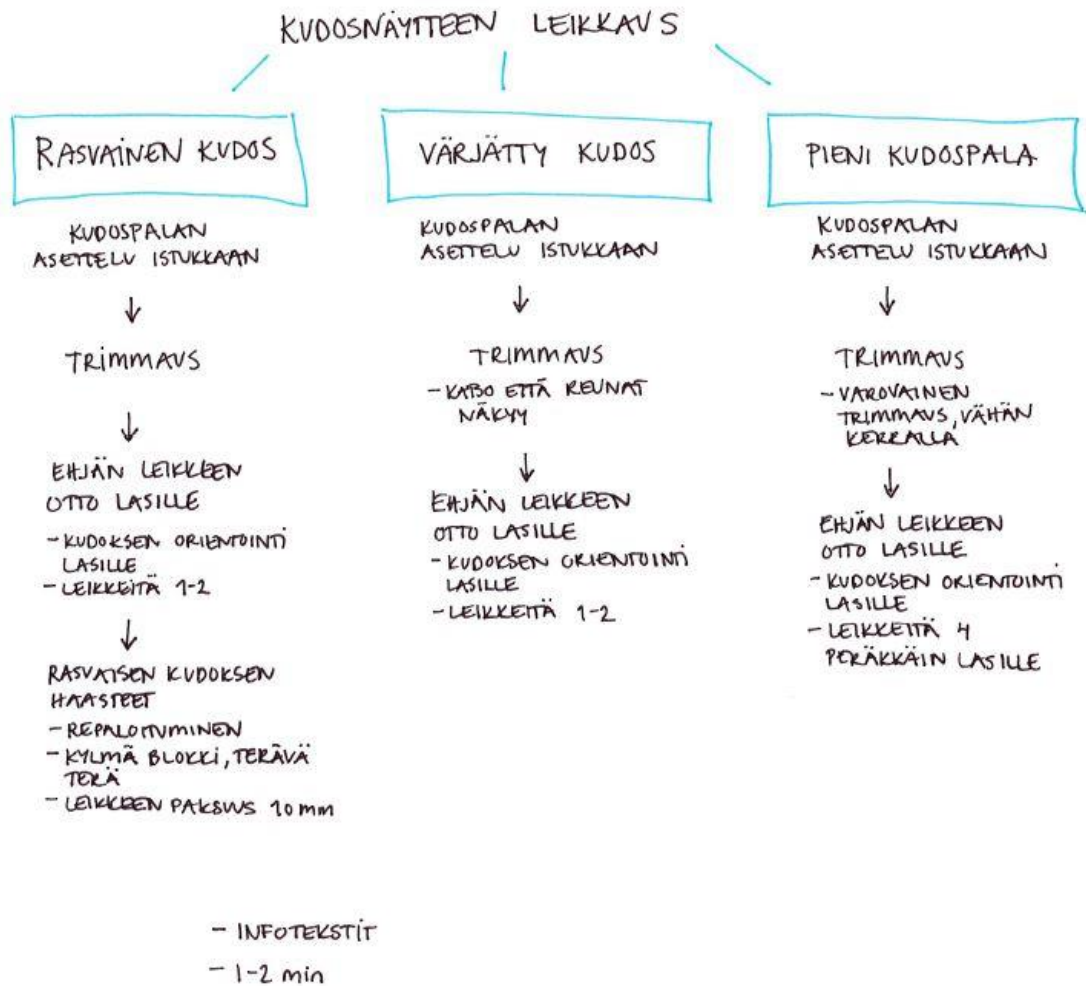 KUDOSNÄYTTEEN LEIKKAUS
RASVAINEN KUDOS
KUDOSPALAN
ASETTELU ISTUKKAAN
TRIMMAUS
EHJÄN LEIKKEEN
OTTO LASILLE
- KUDOKSEN ORIENTOINTI
LASILLE
- LEIKKEITÄ 1-2
RASVAISEN KUDOKSEN
HAASTEET
- REPALOITUMINEN
- KYLMÄ BLOKKI, TERÄVÄ
TERÄ
- LEIKKEEN PAKSUUS 10 mm
VÄRJÄTTY KUDOS
KUDOSPALAN
ASETTELU ISTUKKAAN
TRIMMAUS
- KATSO ETTÄ REUNAT
NÄKYY
EHJÄN LEIKKEEN
OTTO LASILLE
- KUDOKSEN ORIENTOINTI
LASILLE
- LEIKKEITÄ 1-2
PIENI KUDOSPALA
KUDOSPALAN
ASETTELU ISTUKKAAN
TRIMMAUS
- VAROVAINEN
TRIMMAUS, VÄHÄN
KERRALLA
EHJÄN LEIKKEEN
OTTO LASILLE
- KUDOKSEN ORIENTOINTI
LASILLE
- LEIKKEITÄ 4
PERÄKKÄIN LASILLE
- INFOTEKSTIT
- 1-2 min